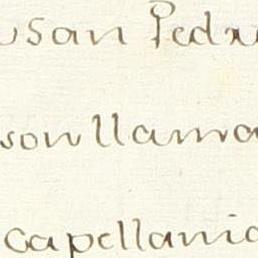 san Pedr
son llama
capellania